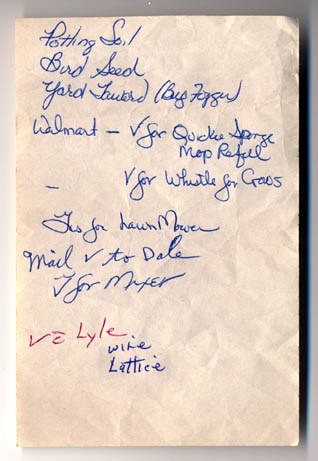 Potting Soil
Bird Seed
Yard (Bug Fogger)
Walmart – ✓ for Quickie Sponge
Mop Refill
– ✓ for Whistle for Craos
for Lawn Mower
Mail ✓ to Dale
✓ for Mixer
✓ Lyle
wire
Lattice